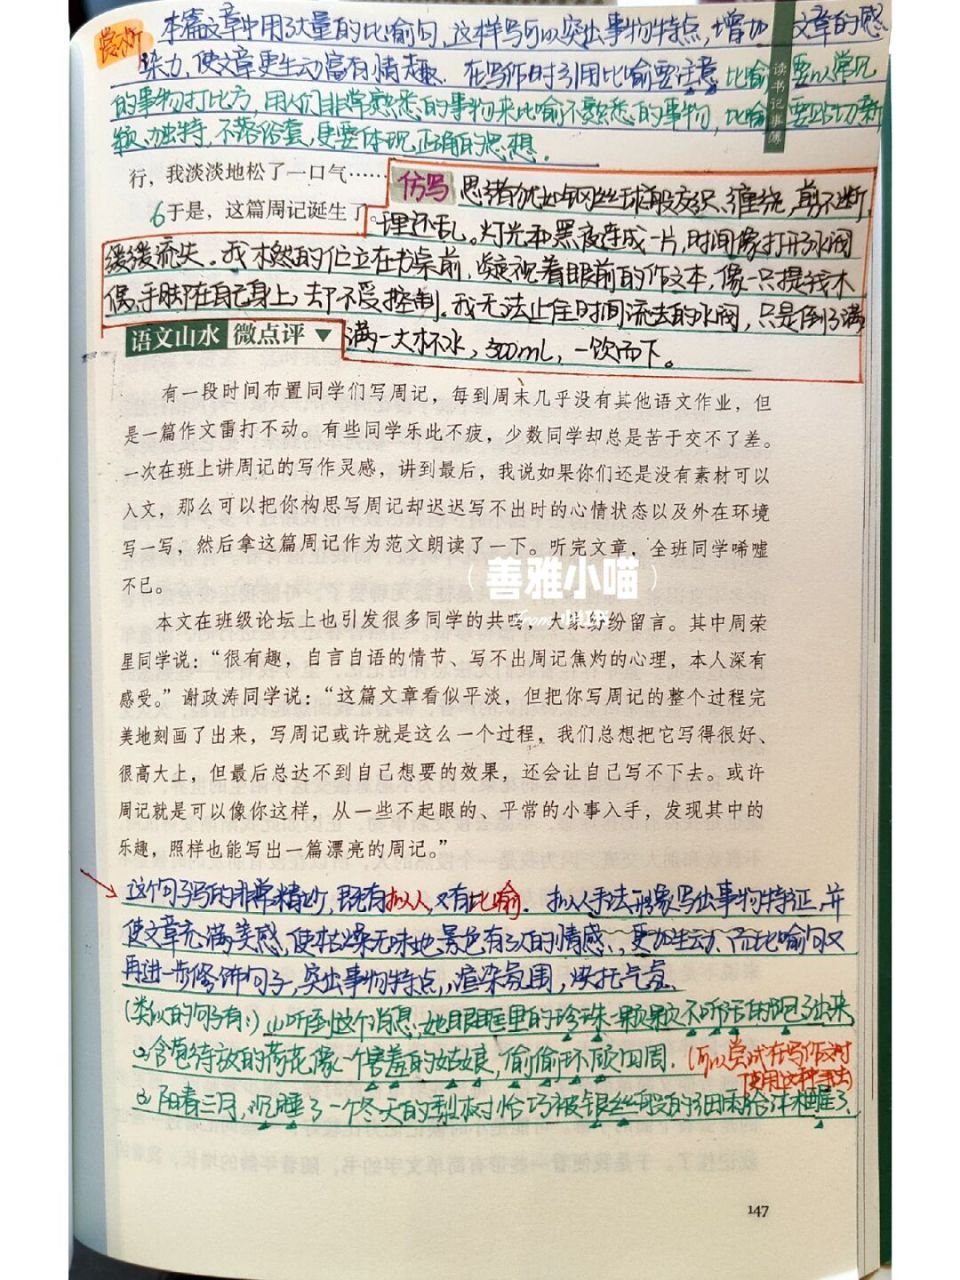 赏析 本篇文章中用了大量的比喻句,这样写可以突出事物特点,增加 文章的感
染力,使文章更生动富有情趣。在写作时引用比喻要注意比喻 要以常见
的事物打比方,用人们非常熟悉的事物来比喻不熟悉的事物,比喻 要贴切新
颖,独特,不落俗套,更要体现正确的思想.
读书记事簿
行,我淡淡地松了一口气……
6于是,这篇周记诞生了。
仿写 思绪犹如钢丝球般交织、缠绕,剪不断,
理还乱。灯光和黑夜连成一片,时间像打开水阀
缓缓流失。我木然的伫立在书桌前,凝视着眼前的作文本,像一只提线木
偶,手脚在自己身上,却不受控制。我无法止住时间流去的水阀,只是倒了满
满一大杯水,500mL,一饮而下。
语文山水 微点评 ▼
有一段时间布置同学们写周记,每到周末几乎没有其他语文作业,但
是一篇作文雷打不动。有些同学乐此不疲,少数同学却总是苦于交不了差。
一次在班上讲周记的写作灵感,讲到最后,我说如果你们还是没有素材可以
入文,那么可以把你构思写周记却迟迟写不出时的心情状态以及外在环境
写一写,然后拿这篇周记作为范文朗读了一下。听完文章,全班同学唏嘘
不已。
善雅小喵
本文在班级论坛上也引发很多同学的共鸣,大家纷纷留言。其中周荣
星同学说:“很有趣,自言自语的情节、写不出周记焦灼的心理,本人深有
感受。”谢政涛同学说:“这篇文章看似平淡,但把你写周记的整个过程完
美地刻画了出来,写周记或许就是这么一个过程,我们总想把它写得很好、
很高大上,但最后总达不到自己想要的效果,还会让自己写不下去。或许
周记就是可以像你这样,从一些不起眼的、平常的小事入手,发现其中的
乐趣,照样也能写出一篇漂亮的周记。”
这个句子写的非常精妙,既有拟人,又有比喻. 拟人手法形象写出事物特征,并
使文章充满美感,使枯燥无味地景色有了人的情感,更加生动,而比喻句又
再进一步修饰句子,突出事物特点,渲染氛围,烘托气氛.
(类似的句子有:) ⑴听到这个消息,她眼眶里的珍珠一颗颗不听话的跑了出来
⑵含苞待放的荷花像一个害羞的姑娘,偷偷环顾四周. (可以尝试在写作文时
使用这种手法)
⑶阳春三月,沉睡了一个冬天的梨树恰巧被银丝般的细雨给沐醒了.
147